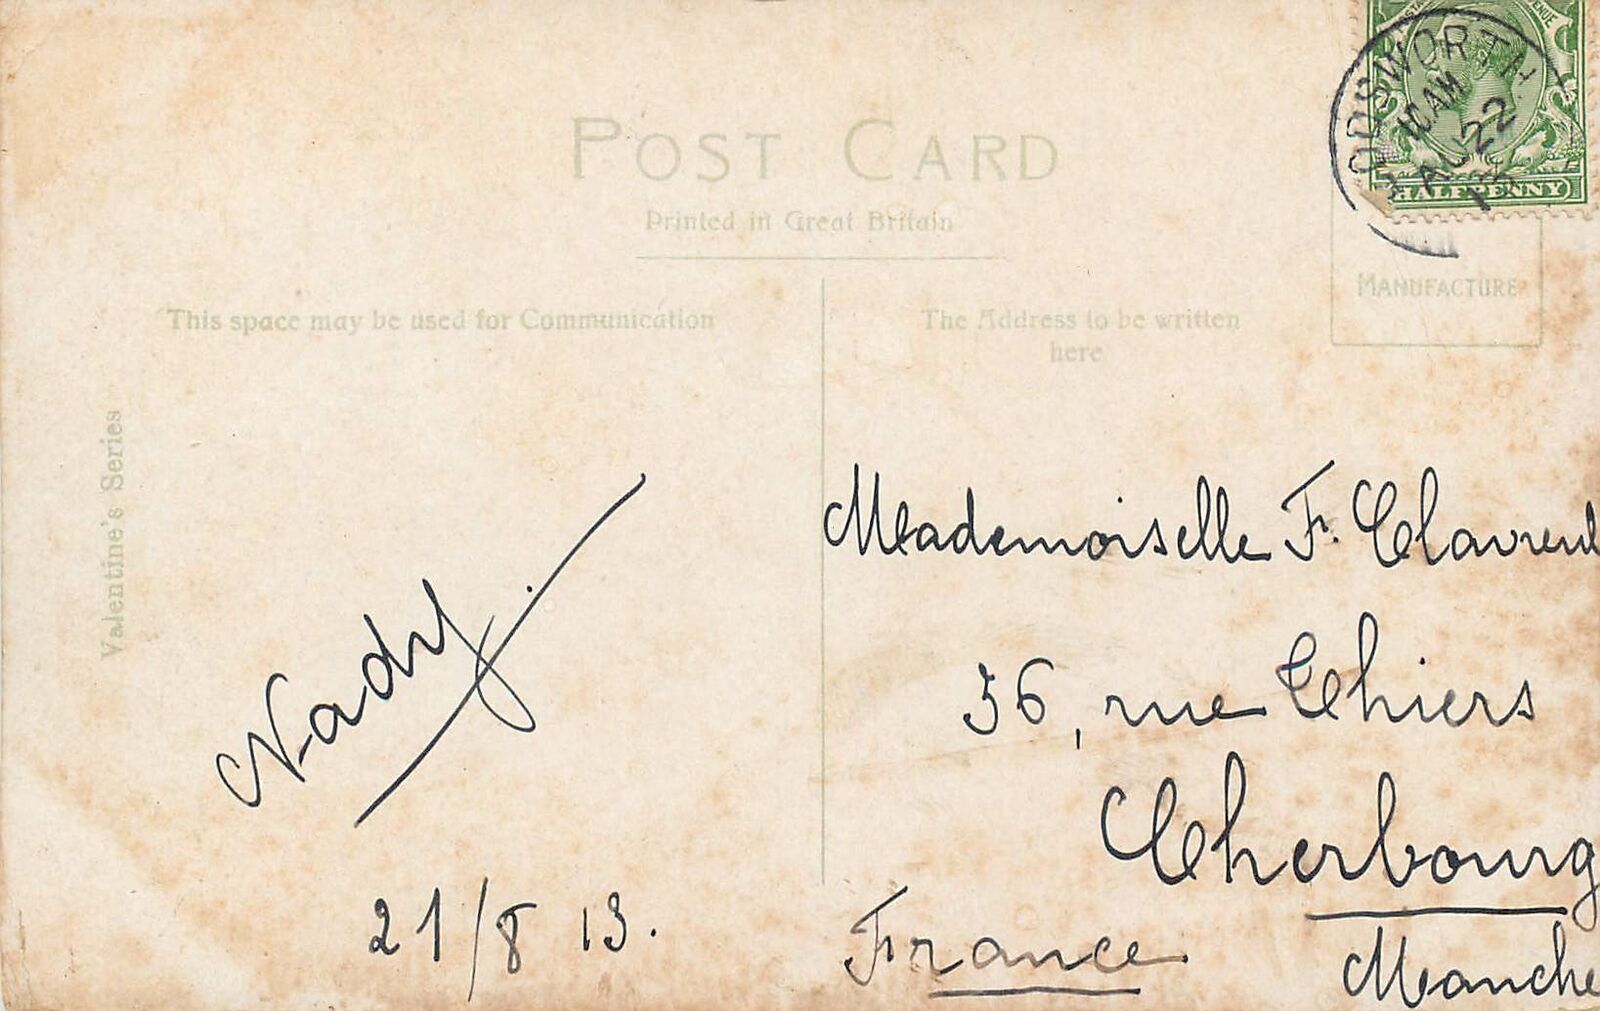 POST CARD
Printed in Great Britain
This space may be used for Communication
The Address to be written
here
MANUFACTURE
Valentine's Series
HALFPENNY
10 AM
AU 22
13
Mademoiselle F. Clavreul
56, rue Thiers
Cherbourg
France
Manche
Nady.
21/8 13.